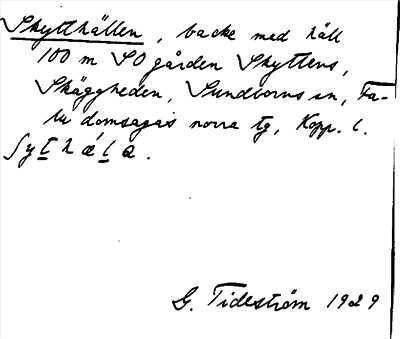 Skytthällen, backe med häll
100 m SO gården Skyttens,
Skäggheden, Sundborns sn, Fa-
lu domsagas norra tg, Kopp. l.
G. Tideström 1929